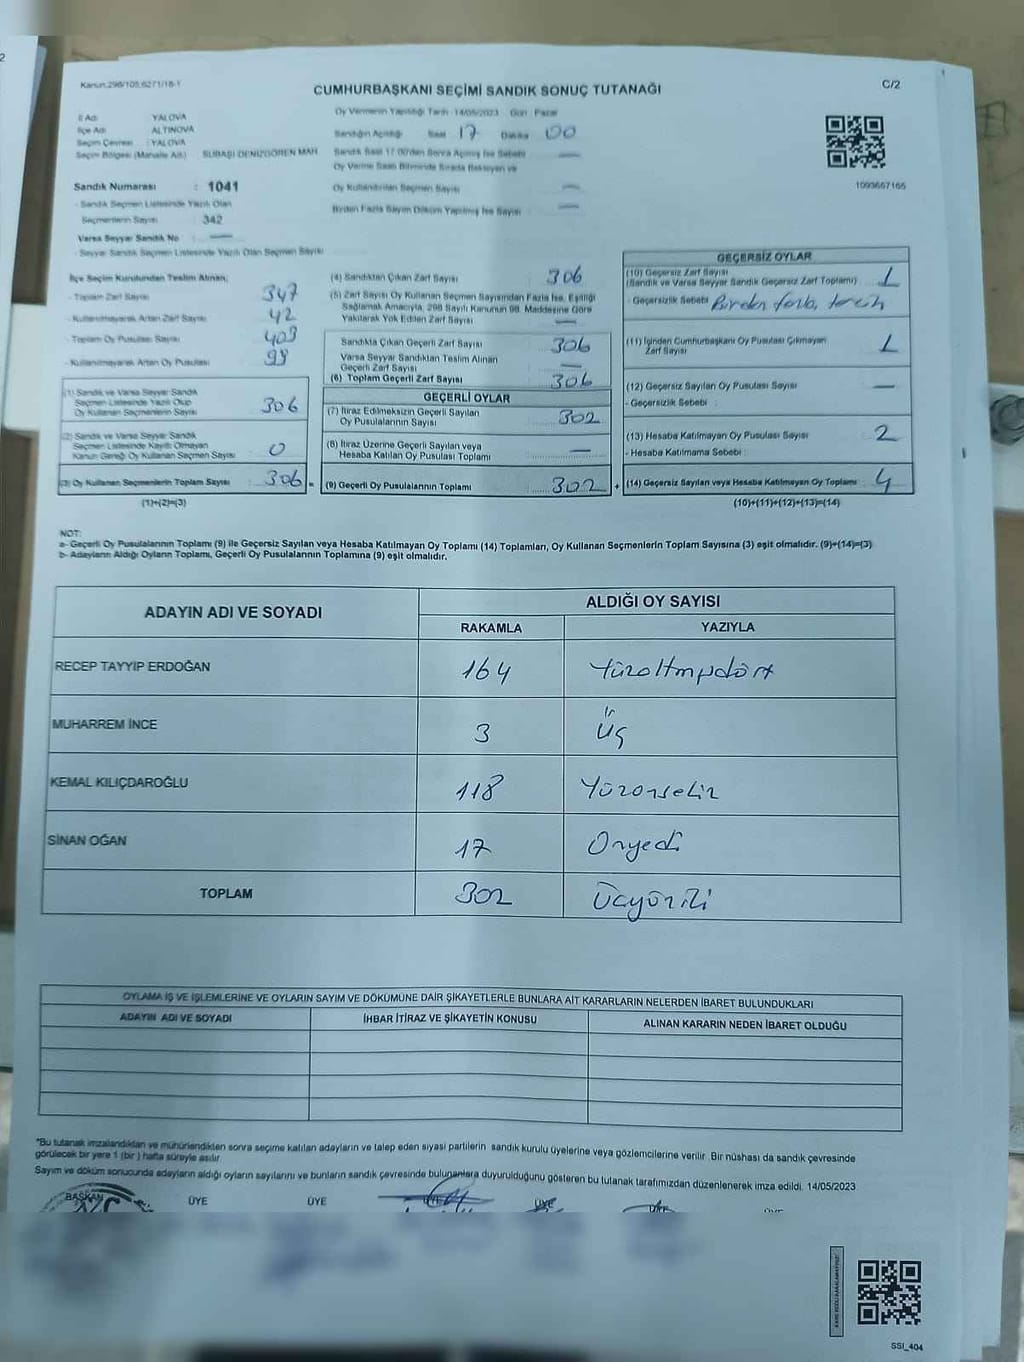 Kanun:298/105,6271/18-1
CUMHURBAŞKANI SEÇİMİ SANDIK SONUÇ TUTANAĞI
C/2
Oy Vermenin Yapıldığı Tarih 14/05/2023 Gün Pazar
İl Adı YALOVA
İlçe Adı ALTINOVA
Seçim Çevresi : YALOVA
Seçim Bölgesi (Mahalle Adı) SUBAŞI DENİZGÖREN MAH
Sandığın Açıldığı Saat 17 Dakika 00
Sandık Saat 17.00'den Sonra Açılmış İse Sebebi —
Oy Verme Saati Bitiminde Sırada Bekleyen ve
Oy Kullandırılan Seçmen Sayısı —
Birden Fazla Sayım Döküm Yapılmış İse Sayısı —
1093667165
Sandık Numarası : 1041
- Sandık Seçmen Listesinde Yazılı Olan
Seçmenlerin Sayısı 342
Varsa Seyyar Sandık No —
- Seyyar Sandık Seçmen Listesinde Yazılı Olan Seçmen Sayısı
İlçe Seçim Kurulundan Teslim Alınan;
- Toplam Zarf Sayısı 347
- Kullanılmayarak Artan Zarf Sayısı 42
- Toplam Oy Pusulası Sayısı 403
- Kullanılmayarak Artan Oy Pusulası 98
(1) Sandık ve Varsa Seyyar Sandık
Seçmen Listesinde Yazılı Olup
Oy Kullanan Seçmenlerin Sayısı 306
(2) Sandık ve Varsa Seyyar Sandık
Seçmen Listesinde Kayıtlı Olmayan
Kanun Gereği Oy Kullanan Seçmen Sayısı 0
(3) Oy Kullanan Seçmenlerin Toplam Sayısı 306 =
(1)+(2)=(3)
(4) Sandıktan Çıkan Zarf Sayısı 306
(5) Zarf Sayısı Oy Kullanan Seçmen Sayısından Fazla İse, Eşitliği
Sağlamak Amacıyla, 298 Sayılı Kanunun 98. Maddesine Göre
Yakılarak Yok Edilen Zarf Sayısı —
Sandıkta Çıkan Geçerli Zarf Sayısı 306
Varsa Seyyar Sandıktan Teslim Alınan
Geçerli Zarf Sayısı —
(6) Toplam Geçerli Zarf Sayısı 306
GEÇERLİ OYLAR
(7) İtiraz Edilmeksizin Geçerli Sayılan
Oy Pusulasının Sayısı 302
(8) İtiraz Üzerine Geçerli Sayılan veya
Hesaba Katılan Oy Pusulası Toplamı —
(9) Geçerli Oy Pusulalarının Toplamı 302 +
GEÇERSİZ OYLAR
(10) Geçersiz Zarf Sayısı 1
(Sandık ve Varsa Seyyar Sandık Geçersiz Zarf Toplamı)
- Geçersizlik Sebebi Birden fazla tercih
(11) İçinden Cumhurbaşkanı Oy Pusulası Çıkmayan
Zarf Sayısı 1
(12) Geçersiz Sayılan Oy Pusulası Sayısı —
- Geçersizlik Sebebi :
(13) Hesaba Katılmayan Oy Pusulası Sayısı 2
- Hesaba Katılmama Sebebi :
(14) Geçersiz Sayılan veya Hesaba Katılmayan Oy Toplamı 4
(10)+(11)+(12)+(13)=(14)
NOT:
a- Geçerli Oy Pusulalarının Toplamı (9) ile Geçersiz Sayılan veya Hesaba Katılmayan Oy Toplamı (14) Toplamları, Oy Kullanan Seçmenlerin Toplam Sayısına (3) eşit olmalıdır. (9)+(14)=(3)
b- Adayların Aldığı Oyların Toplamı, Geçerli Oy Pusulalarının Toplamına (9) eşit olmalıdır.
ADAYIN ADI VE SOYADI
ALDIĞI OY SAYISI
RAKAMLA YAZIYLA
RECEP TAYYİP ERDOĞAN 164 Yüzaltmışdört
MUHARREM İNCE 3 Üç
KEMAL KILIÇDAROĞLU 118 Yüzonsekiz
SİNAN OĞAN 17 Onyedi
TOPLAM 302 Üçyüziki
OYLAMA İŞ VE İŞLEMLERİNE VE OYLARIN SAYIM VE DÖKÜMÜNE DAİR ŞİKAYETLERLE BUNLARA AİT KARARLARIN NELERDEN İBARET BULUNDUKLARI
ADAYIN ADI VE SOYADI İHBAR İTİRAZ VE ŞİKAYETİN KONUSU ALINAN KARARIN NEDEN İBARET OLDUĞU
*Bu tutanak imzalandıktan ve mühürlendikten sonra seçime katılan adayların ve talep eden siyasi partilerin sandık kurulu üyelerine veya gözlemcilerine verilir. Bir nüshası da sandık çevresinde
görülecek bir yere 1 (bir) hafta süreyle asılır.
Sayım ve döküm sonucunda adayların aldığı oyların sayılarını ve bunların sandık çevresinde bulunanlara duyurulduğunu gösteren bu tutanak tarafımızdan düzenlenerek imza edildi. 14/05/2023
BAŞKAN ÜYE ÜYE ÜYE ÜYE ÜYE
SSI_404